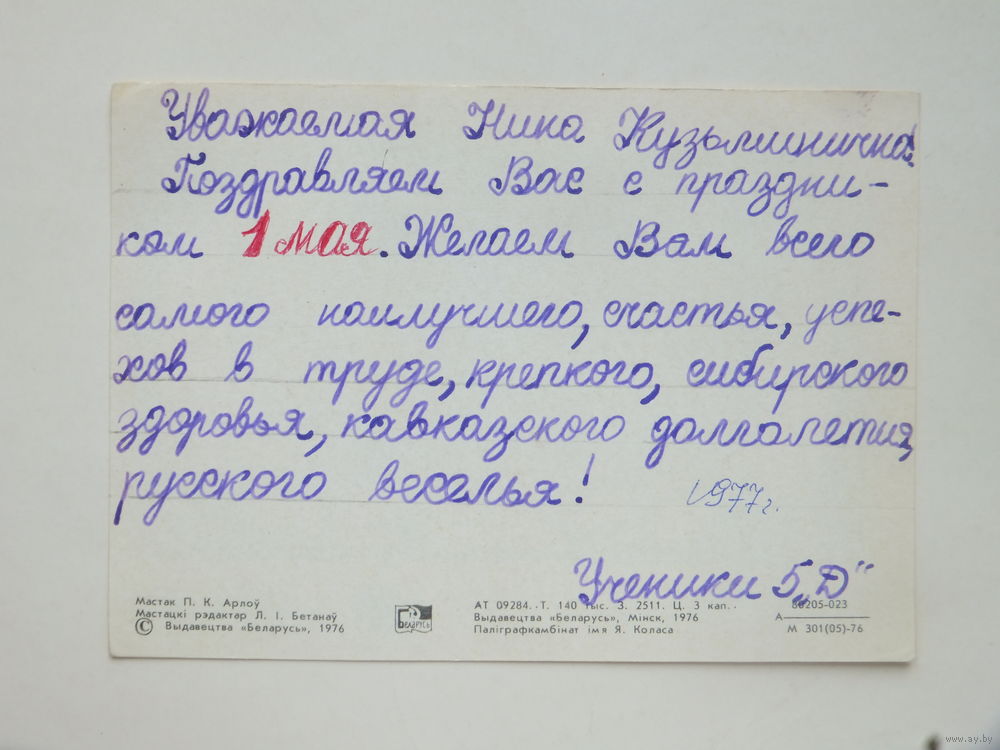 Уважаемая Нина Кузьминична!
Поздравляем Вас с праздни-
ком 1 мая. Желаем Вам всего
самого наилучшего, счастья, успе-
хов в труде, крепкого, сибирского
здоровья, кавказского долголетия,
русского веселья!
1977 г.
Ученики 5 „Д“
Мастак П. К. Арлоў
Мастацкі рэдактар Л. І. Бетанаў
© Выдавецтва «Беларусь», 1976
БЕЛАРУСЬ
АТ 09284. Т. 140 тыс. З. 2511. Ц. 3 кап.
Выдавецтва «Беларусь», Мінск, 1976
Паліграфкамбінат імя Я. Коласа
80205-023
А
М 301(05)-76
www.ay.by